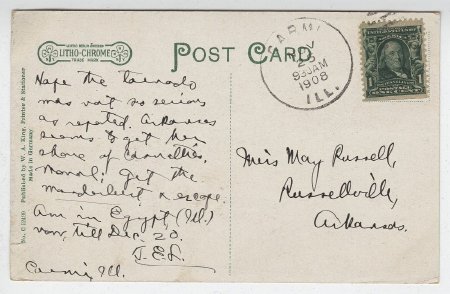 LITHO-CHROME
TRADE MARK
POST CARD
CARMI
NOV
930AM
1908
ILL.
Hope the tornado
was not so serious
as reported. Arkansas
seems to get her
share of casualties.
Moral: Get the
& escape.
Am in Egypt, (Ill.)
now, till Dec. 20.
J.E.L.
Carmi, Ill.
Miss May Russell,
Russellville,
Arkansas.
Published by W. A. King, Printer & Stationer
Made in Germany